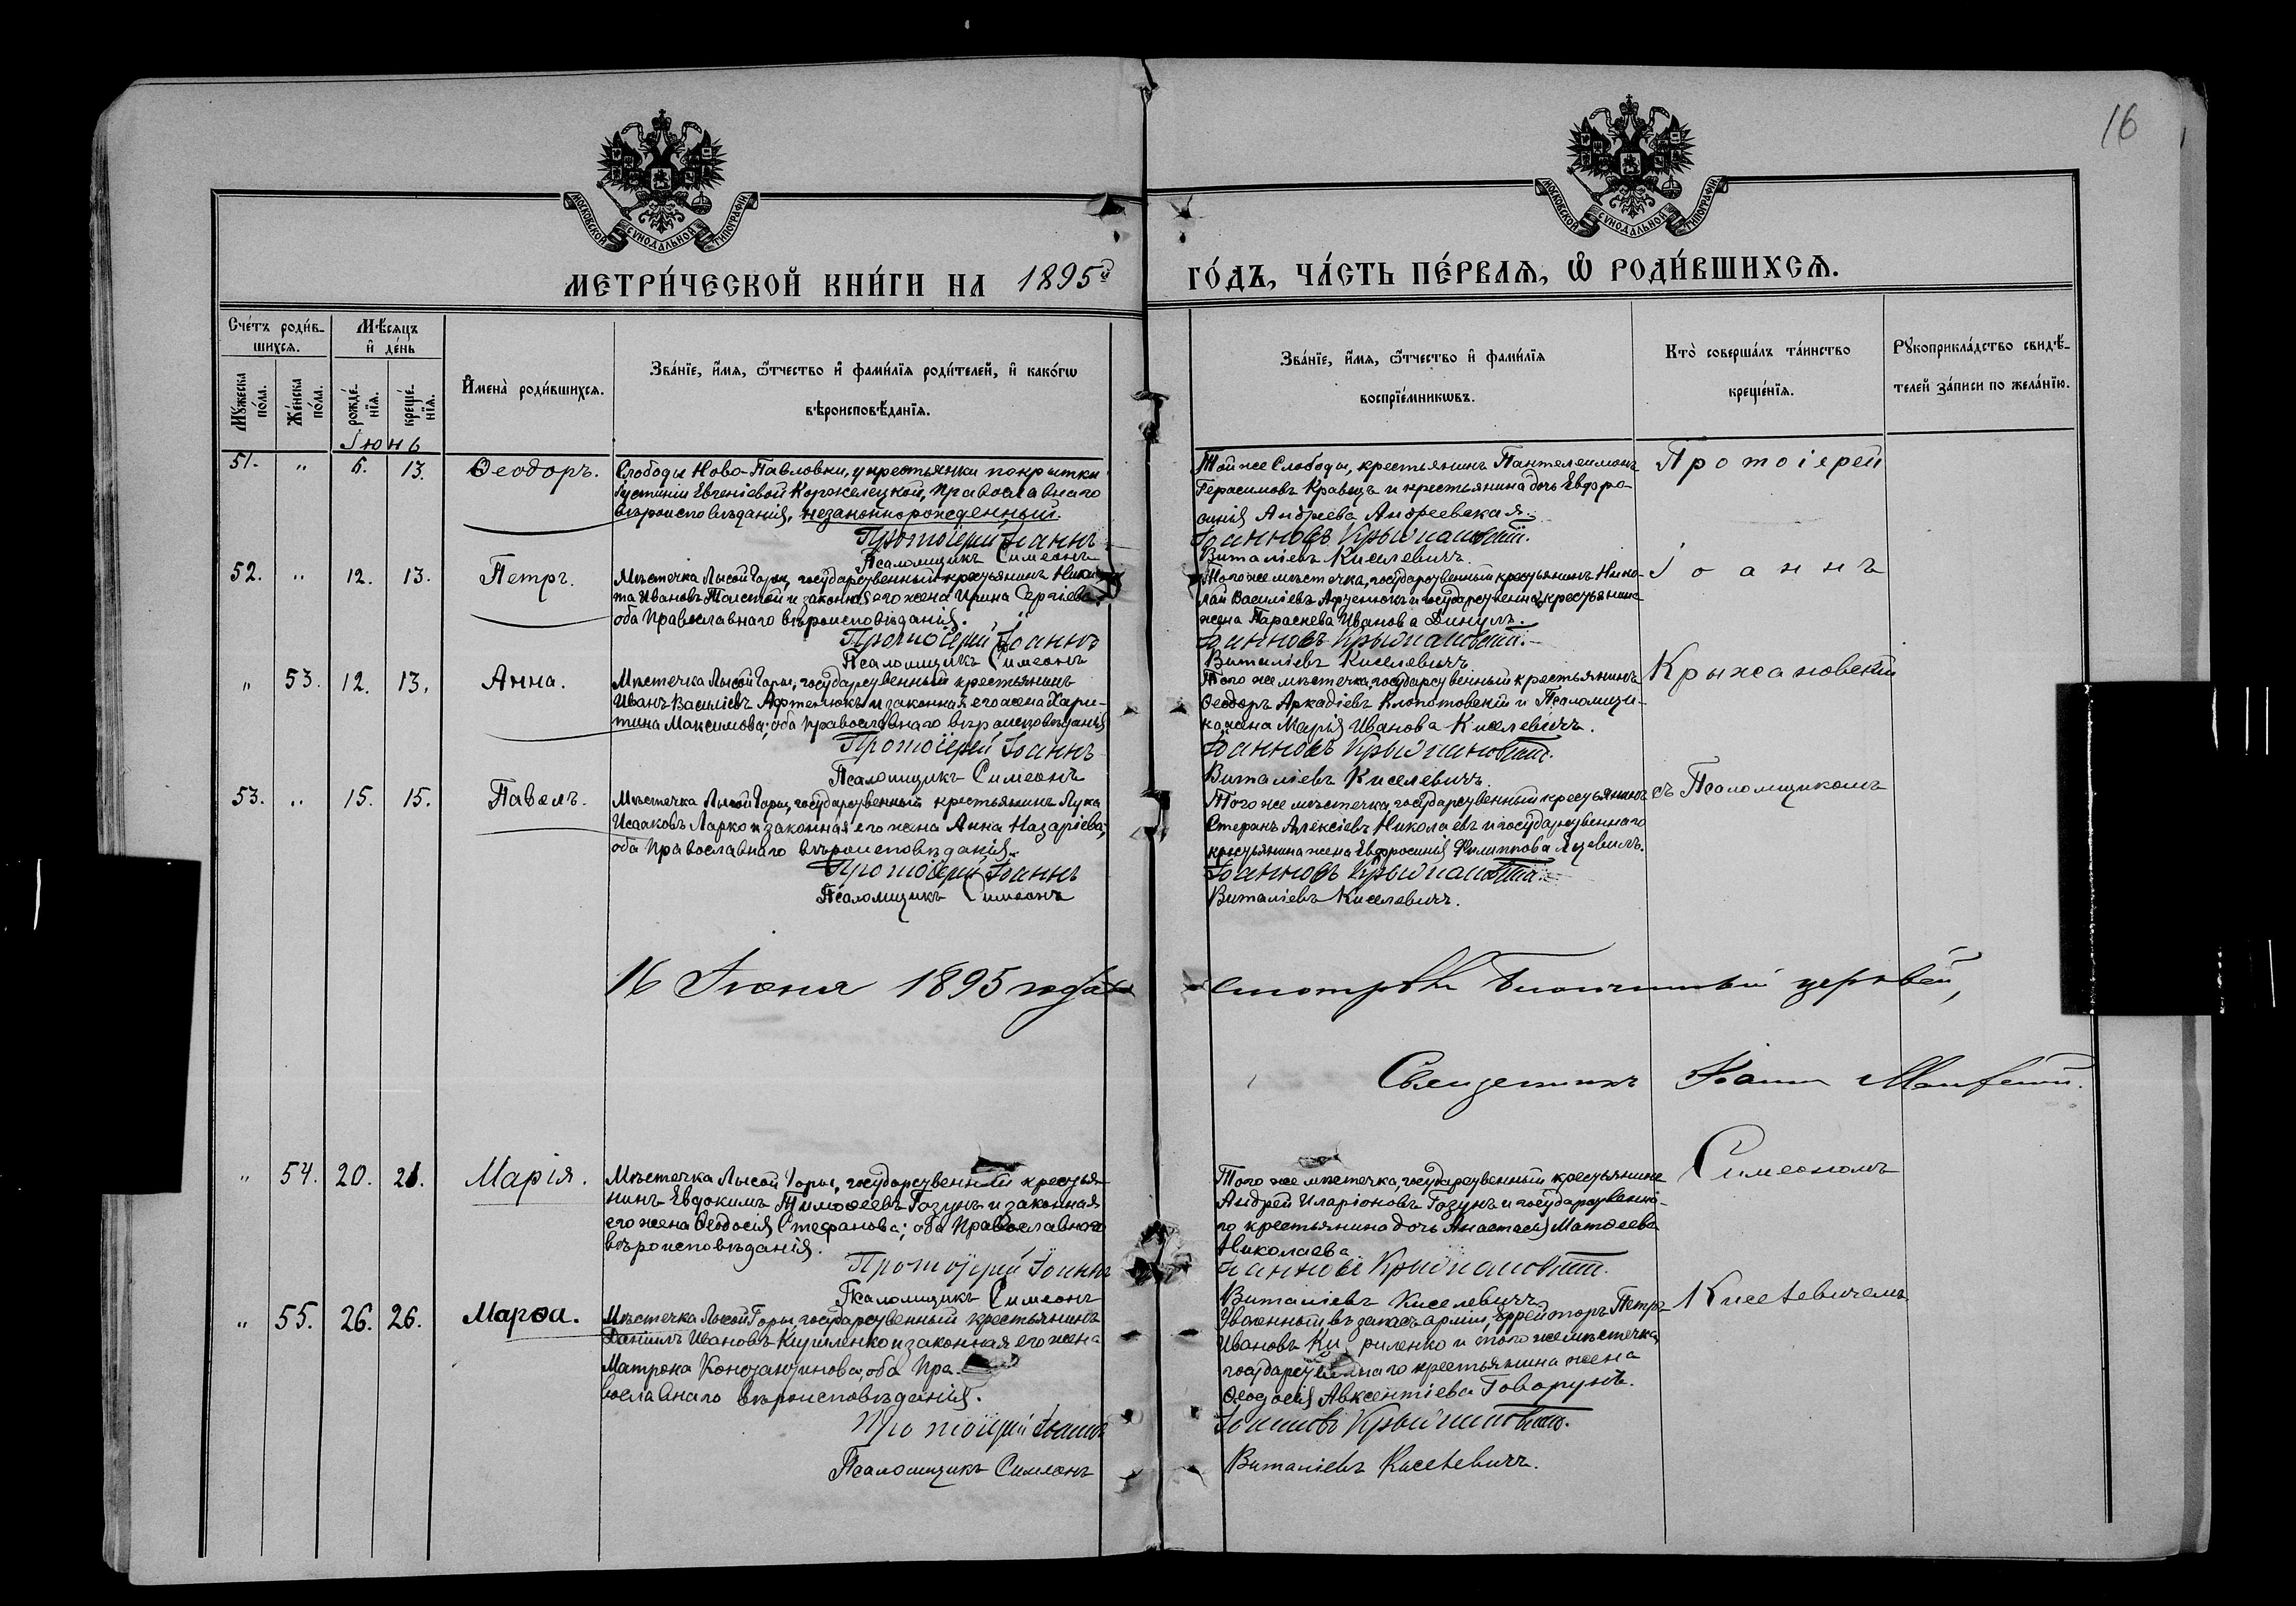 16
МОСКОВСКОЙ СѴНОДАЛЬНОЙ ТИПОГРАФІИ
МОСКОВСКОЙ СѴНОДАЛЬНОЙ ТИПОГРАФІИ
МЕТРИ́ЧЕСКОЙ КНИ́ГИ НА 1895й ГО́ДЪ, ЧА́СТЬ ПЕ́РВАЯ, Ѡ РОДИ́ВШИХСЯ.
Сче́тъ роди́в-
шихся.
Мѣ́сяцъ
и де́нь
Мꙋжеска по́ла.
Же́нска по́ла.
рожде́-
нїя.
креще́-
нїя.
И҆мена̀ роди́вшихся.
Зва́нїе, и҆́мя, ѻ҆́тчество и҆ фами́лїя роди́телей, и҆ како́гѡ
вѣроисповѣ́данїя.
Зва́нїе, и҆́мя, ѻ҆́тчество и҆ фами́лїя
воспрїе́мникѡвъ.
Кто̀ соверша́лъ та́инство
креще́нїя.
Рꙋкоприкла́дство свидѣ́-
телей за́писи по жела́нїю.
Іюнь
51. " 6. 13. Ѳеодоръ.
Слободы Ново-Павловки, у крестьянки покрытки
Іустиніи Евгеніевой Корженецкой, Православнаго
вѣроисповѣданія, незаконнорожденный.
Протоіерей Іоаннъ
Псаломщикъ Симеонъ
Той же Слободы, крестьянинъ Пантелеимонъ
Герасимовъ Кравецъ и крестьянина дочь Евфро-
синія Андреева Андреевская.
Іоанновъ Крыжановскій.
Виталіевъ Киселевичъ.
Протоіерей
52. " 12. 13. Петръ.
Мѣстечка Лысой Горы, государственный крестьянинъ Ники-
та Ивановъ Толстой и законная его жена Ирина Сергіева,
оба Православнаго вѣроисповѣданія.
Протоіерей Іоаннъ
Псаломщикъ Симеонъ
Того же мѣстечка, государственный крестьянинъ Нико-
лай Василіевъ и государственнаго крестьянина
жена Параскева Иванова
Іоанновъ Крыжановскій.
Виталіевъ Киселевичъ
Іоаннъ
" 53. 12. 13. Анна.
Мѣстечка Лысой Горы, государственный крестьянинъ
Иванъ Василіевъ Афтенюкъ и законная его жена Хари-
тина Максимова; оба Православнаго вѣроисповѣданія
Протоіерей Іоаннъ
Псаломщикъ Симеонъ
Того же мѣстечка, государственный крестьянинъ
Ѳеодоръ Аркадіевъ Клопотовскій и Псаломщи-
ка жена Марія Иванова Киселевичъ.
Іоанновъ Крыжановскій.
Виталіевъ Киселевичъ.
Крыжановскій
53. " 15. 15. Павелъ.
Мѣстечка Лысой Горы, государственный крестьянинъ Лука
Исааковъ Ларко и законная его жена Анна Назаріева;
оба Православнаго вѣроисповѣданія.
Протоіерей Іоаннъ
Псаломщикъ Симеонъ
Того же мѣстечка, государственный крестьянинъ
Стефанъ Алексіевъ Николаевъ и государственнаго
крестьянина жена Евфросинія Филиппова
Іоанновъ Крыжановскій.
Виталіевъ Киселевичъ.
съ Псаломщикомъ
16 Іюня 1895 года
смотрѣлъ Благочинный церквей,
Священникъ Іоаннъ
" 54. 20. 21. Марія.
Мѣстечка Лысой Горы, государственный крестья-
нинъ Евдокимъ Тимоѳеевъ Гозунъ и законная
его жена Ѳеодосія Стефанова; оба Православнаго
вѣроисповѣданія.
Протоіерей Іоаннъ
Псаломщикъ Симеонъ
Того же мѣстечка, государственный крестьянинъ
Андрей Иларіоновъ Гозунъ и государственна-
го крестьянина дочь Анастасія Матѳеева
Николаева
Іоанновъ Крыжановскій.
Виталіевъ Киселевичъ
Симеономъ
" 55. 26. 26. Марѳа.
Мѣстечка Лысой Горы, государственный крестьянинъ
Даніилъ Ивановъ Кириленко и законная его жена
Матрона Константинова, оба Пра-
вославнаго вѣроисповѣданія.
Протоіерей Іоаннъ
Псаломщикъ Симеонъ
Уволенный въ запасъ арміи, ефрейторъ Петръ
Ивановъ Кириленко и того же мѣстечка,
государственнаго крестьянина жена
Ѳеодосія Авксентіева Говорунъ.
Іоанновъ Крыжановскій.
Виталіевъ Киселевичъ.
Киселевичемъ